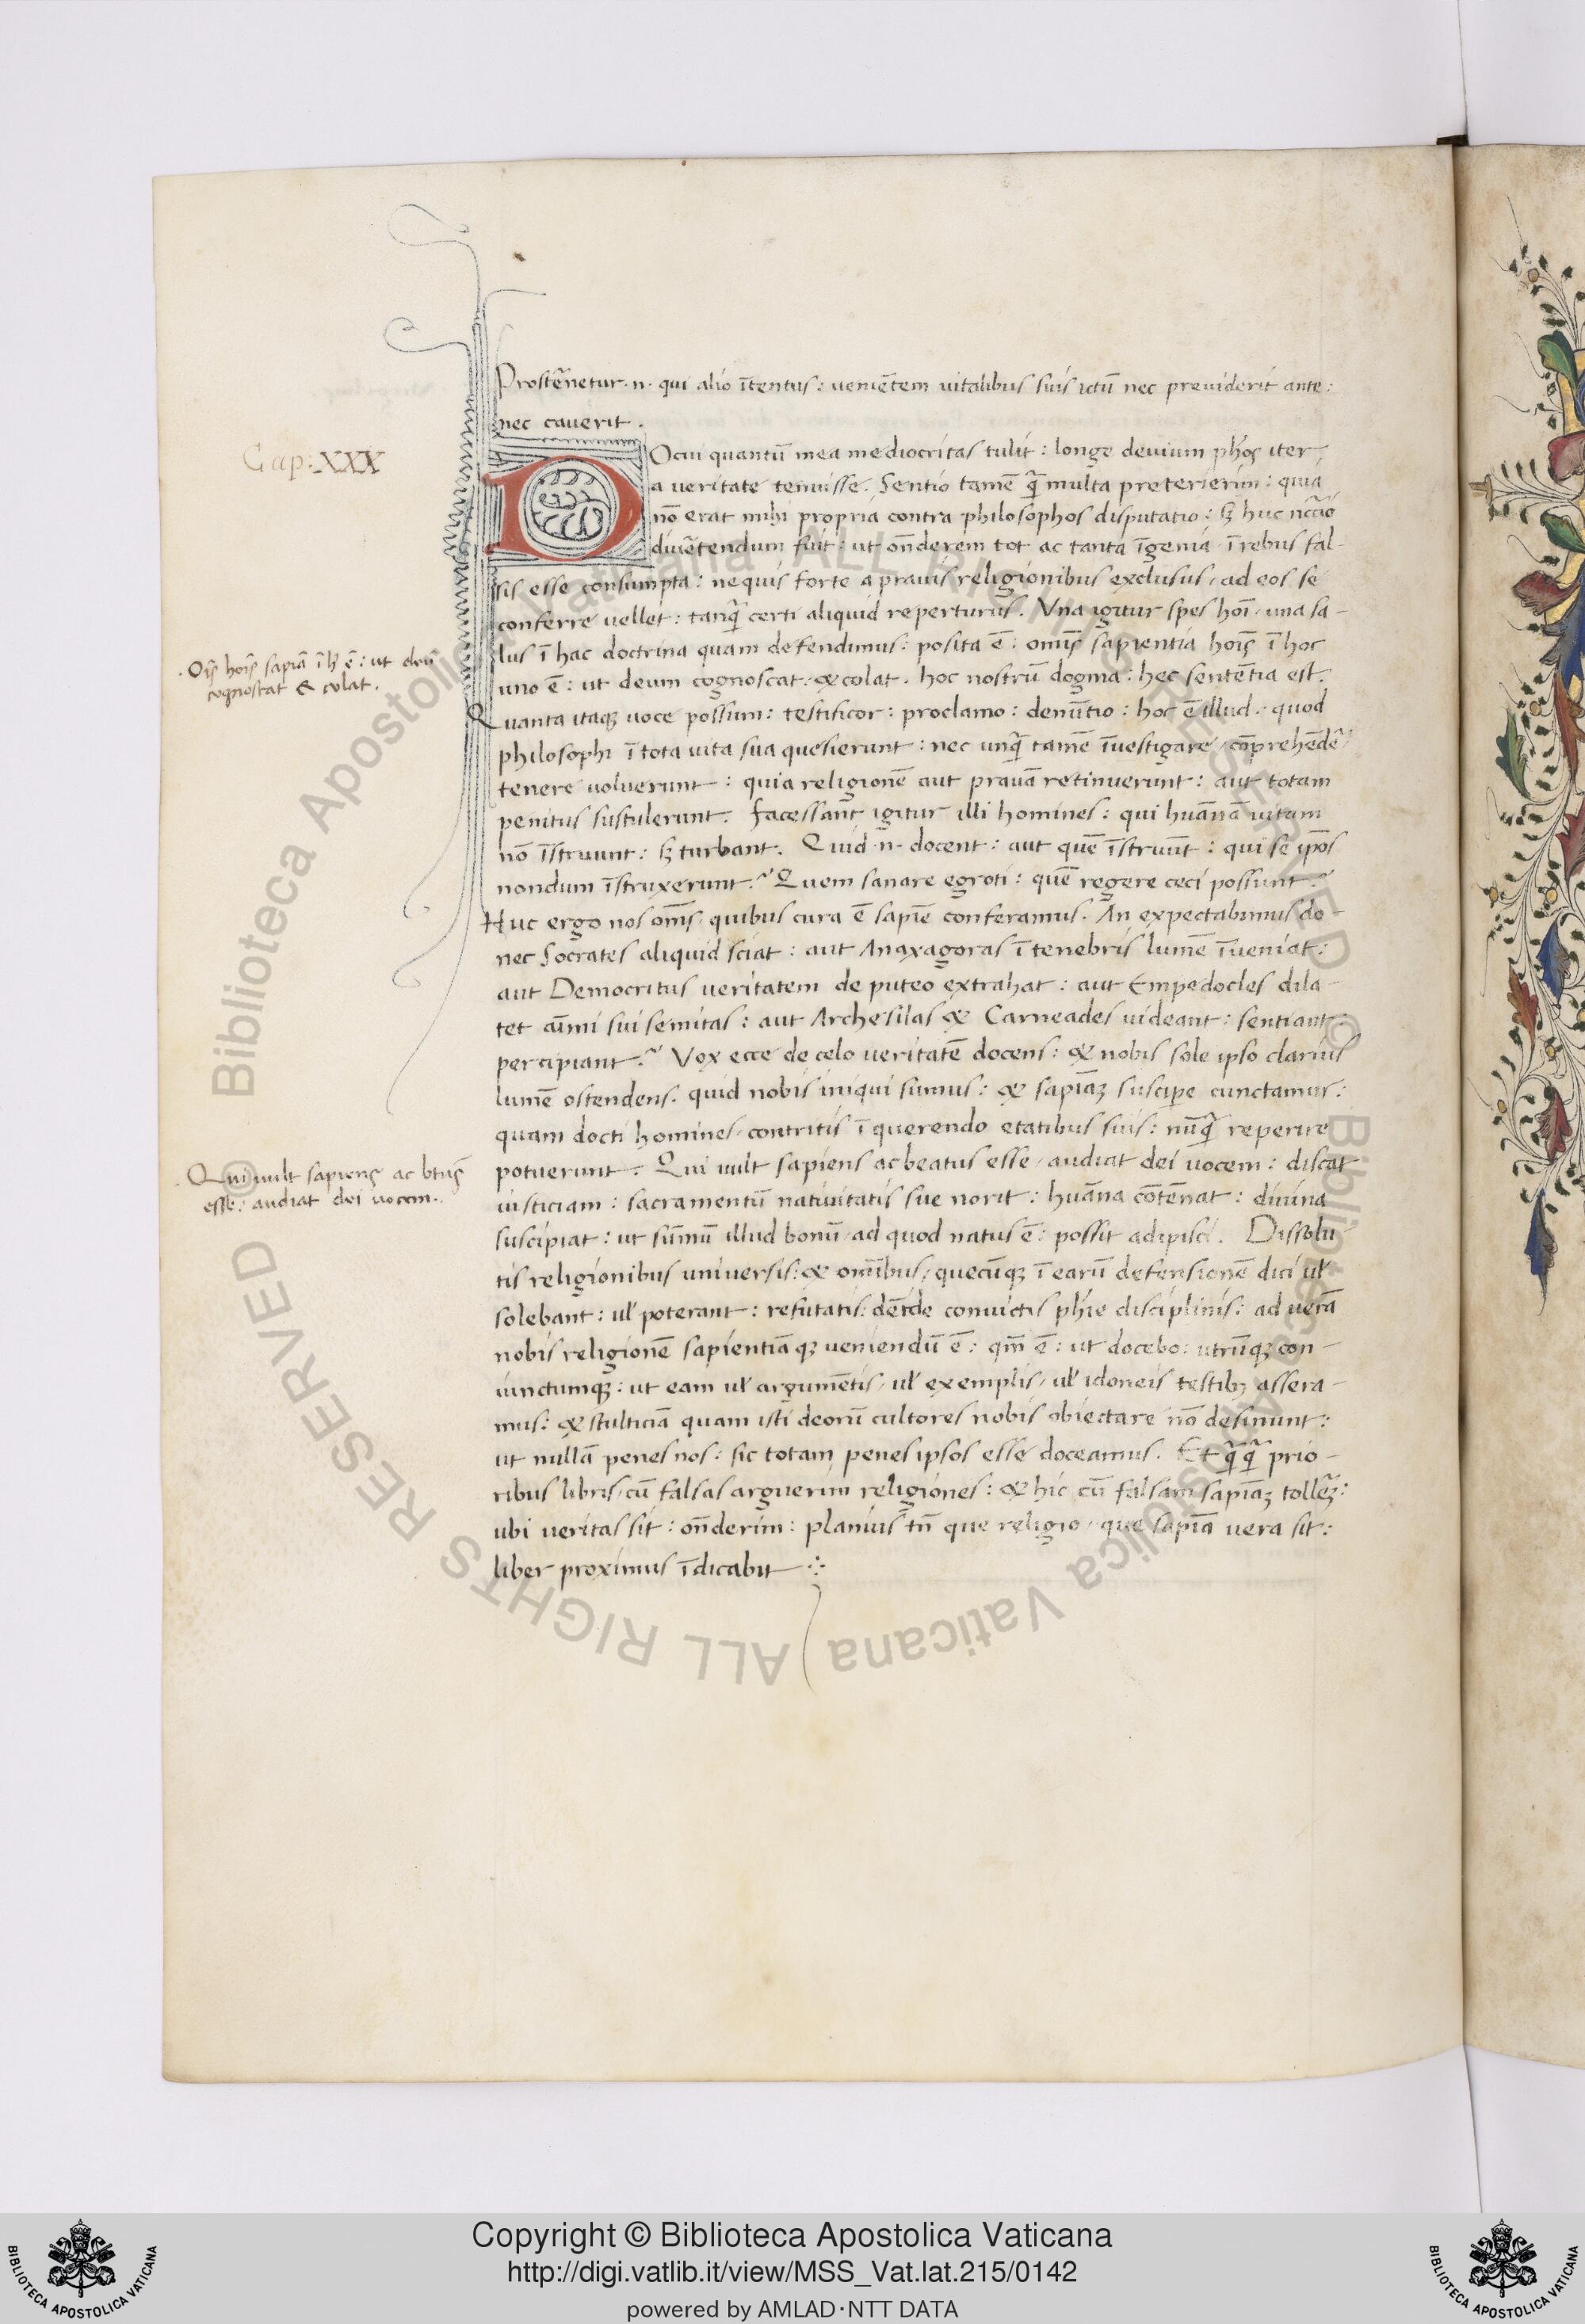 Prostēnetur .n. qui alio ītentus: veniētem vitalibus suis ictū nec previderit ante:
nec caverit.
Cap: XXX
DOcui quantū mea mediocritas tulit: longe devium phōꝝ iter
a veritate tenuisse. Sentio tamē q̄ multa preterierim: quia
nō erat mihi propria contra philosophos disputatio: sꝫ huc nc̄rio
divētendum fuit: ut on̄derem tot ac tanta īgenia ī rebus fal-
sis esse consumpta: nequis forte a pravis religionibus exclusus, ad eos se
conferre vellet: tanq̄ certi aliquid reperturus. Vna igitur spes hoī, una sa-
lus ī hac doctrina quam defendimus: posita ē: omīs sapientia hoīs ī hoc
uno ē: ut deum cognoscat. & colat. hoc nostrū dogma: hec sentētia est.
Oīs hoīs sapiā ī h̄ ē: ut deū
cognoscat & colat.
Quanta itaqꝫ voce possum: testificor: proclamo: denūtio: hoc ē illud. quod
philosophi ī tota vita sua quesierunt: nec unq̄ tamē īvestigare, cōprehēdē,
tenere voluerunt: quia religionē aut pravā retinuerunt: aut totam
penitus sustulerunt. facessant igitur illi homines: qui huānā vitam
nō īstruunt: sꝫ turbant. Quid .n. docent: aut quē īstruūt: qui se ip̄os
nondum īstruxerunt? Quem sanare egroti: quē regere ceci possunt?
Huc ergo nos om̄s, quibus cura ē sapiē conferamus. An expectabimus do-
nec Socrates aliquid sciat: aut Anaxagoras ī tenebris lumē īveniat:
aut Democritus veritatem de puteo extrahat: aut Empedocles dila-
tet aīmi sui semitas: aut Archesilas & Carneades videant: sentiant:
percipiant? Vox ecce de celo veritatē docens: & nobis sole ipso clarius
lumē ostendens. quid nobis iniqui sumus: & sapiāꝫ suscipe cunctamur:
quam docti homines, contritis ī querendo etatibus suis: nūq̄ reperire
potuerunt. Qui vult sapiens ac beatus esse, audiat dei vocem: discat
Qui vult sapiens ac btūs
esse: audiat dei vocem.
iusticiam: sacramentū nativitatis sue norit: huāna cōtēnat: divina
suscipiat: ut sūmū illud bonū, ad quod natus ē: possit adipisci. Dissolu-
tis religionibus universis: & omībus, quecūqꝫ ī earū defensionē dici ul̄
solebant: ul̄ poterant: refutatis: deīde convictis phīe disciplinis: ad verā
nobis religionē sapientiāqꝫ veniendū ē: qm̄ ē: ut docebo: utrūqꝫ con-
iunctumqꝫ: ut eam ul̄ argumētis, ul̄ exemplis, ul̄ idoneis testibꝫ assera-
mus: & stulticiā quam isti deorū cultores nobis obiectare nō desinunt:
ut nullā penes nos: sic totam penes ipsos esse doceamus. Et q̄q̄ prio-
ribus libris, cū falsas arguerim religiones: & hic cū falsam sapiāꝫ tollēꝫ:
ubi veritas sit: on̄derim: planius tn̄ que religio, que sapiā vera sit:
liber proximus īdicabit
Copyright © Biblioteca Apostolica Vaticana
http://digi.vatlib.it/view/MSS_Vat.lat.215/0142
powered by AMLAD·NTT DATA
BIBLIOTECA APOSTOLICA VATICANA
BIBLIOTECA APOSTOLICA VATICANA
© Biblioteca Apostolica Vaticana ALL RIGHTS RESERVED © Biblioteca Apostolica Vaticana ALL RIGHTS RESERVED